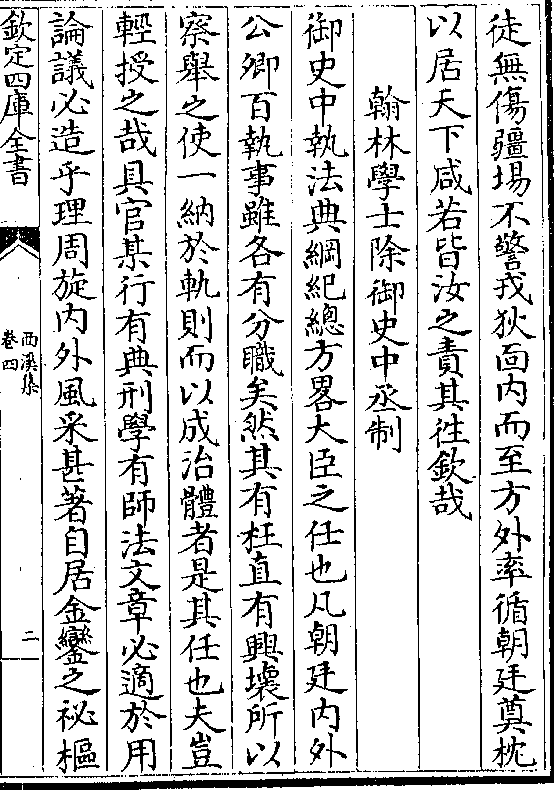 徒無傷疆埸不警戎狄面内而至方外率循朝廷奠枕
以居天下咸若皆汝之責其往欽哉
翰林學士除御史中丞制
御史中執法典綱紀總方畧大臣之任也凡朝廷内外
公卿百執事雖各有分職矣然其有枉直有興壞所以
察舉之使一納於軌則而以成治體者是其任也夫豈
輕授之哉具官某行有典刑學有師法文章必適於用
論議必造乎理周旋内外風采甚著自居金鑾之祕樞
欽定四庫全書
西溪集
卷四
二